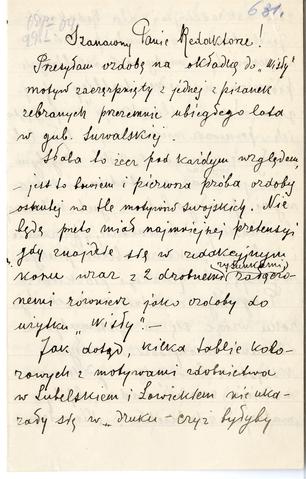 681.
Szanowny Panie Redaktorze!
Przesyłam ozdobę na okładkę do „Wisły"
motyw zaczerpnięty z jednej z pisanek
zebranych przezemnie ubiegłego lata
w gub. Suwalskiej.
Słaba to rzecz pod każdym względem,
– jest to bowiem i pierwsza próba ozdoby
osnutej na tle motywów swojskich. Nie
będę przeto miał najmniejszej pretensyi
gdy znajdzie się w redakcyjnym
koszu wraz z 2 drobnemi rysunkami załączo-
nemi również jako ozdoby do
użytku „Wisły"! –
Jak dotąd, kilka tablic kolo-
rowych z motywami zdobnictwa
w Lubelskiem i Łowickiem nie uka-
zały się w druku – czyż byłyby